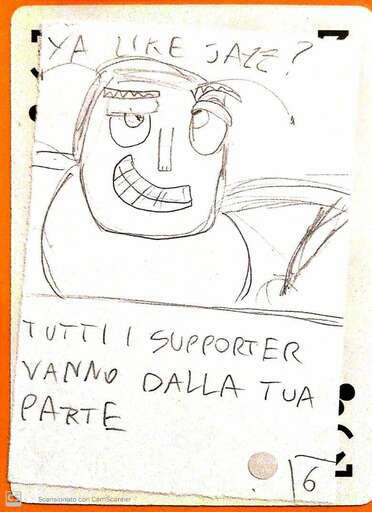 YA LIKE JAZZ?
TUTTI I SUPPORTER
VANNO DALLA TUA
PARTE
16
CS Scansionato con CamScanner